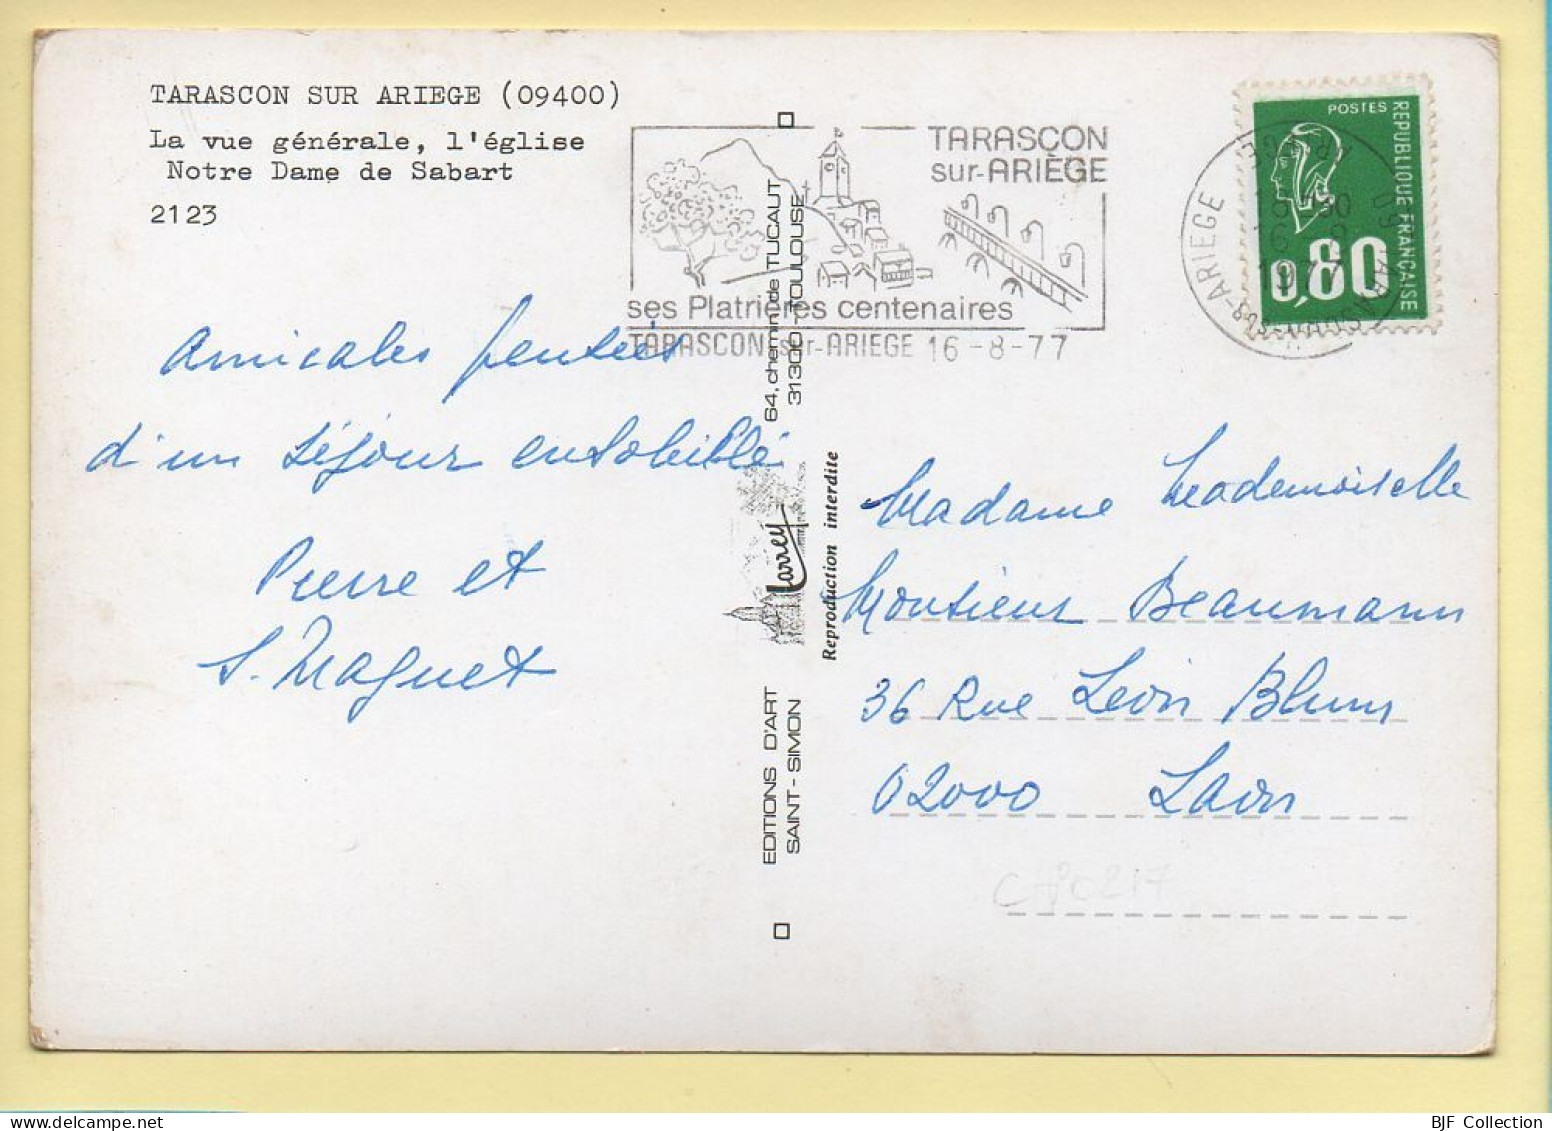 TARASCON SUR ARIEGE (09400)
La vue générale, l'église
Notre Dame de Sabart
2123
TARASCON
sur-ARIÈGE
ses Platrières centenaires
TARASCON sur-ARIEGE 16-8-77
POSTES
REPUBLIQUE FRANCAISE
0,80
1977
Amicales pensées
d'un séjour ensoleillé
Pierre et
S. Maguet
64, chemin de TUCAUT
31300 - TOULOUSE
Larrey
Reproduction interdite
EDITIONS D'ART
SAINT-SIMON
Madame Mademoiselle
Monsieur Beaumann
36 Rue Léon Blum
02000 Laon
BJF Collection